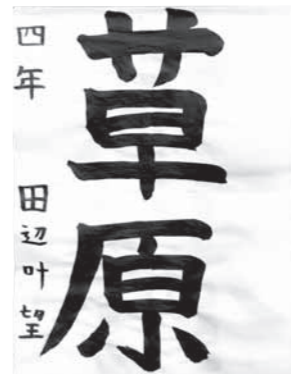 草原
四年 田辺叶望